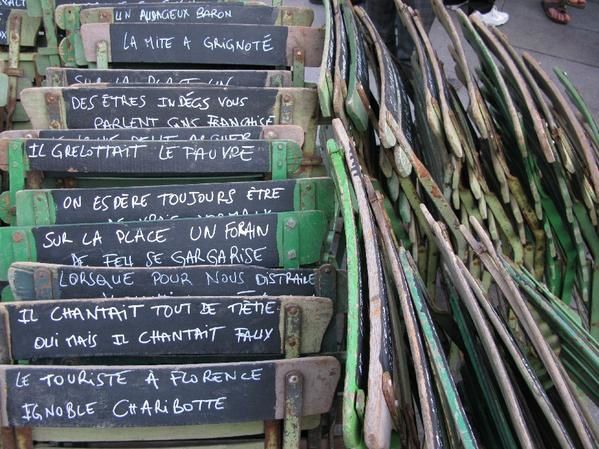 UN AUDACIEUX BARON
LA MITE A GRIGNOTÉ
SUR LA PLACE UN
DES ÊTRES INDÉCIS VOUS
PARLENT SANS FRANCHISE
IL GRELOTTAIT LE PAUVRE
ON ESPÈRE TOUJOURS ÊTRE
SUR LA PLACE UN FORAIN
DE FEU SE GARGARISE
LORSQUE POUR NOUS DISTRAIRE
IL CHANTAIT TOUT DE MÊME
OUI MAIS IL CHANTAIT FAUX
LE TOURISTE À FLORENCE
IGNOBLE CHARIBOTTE